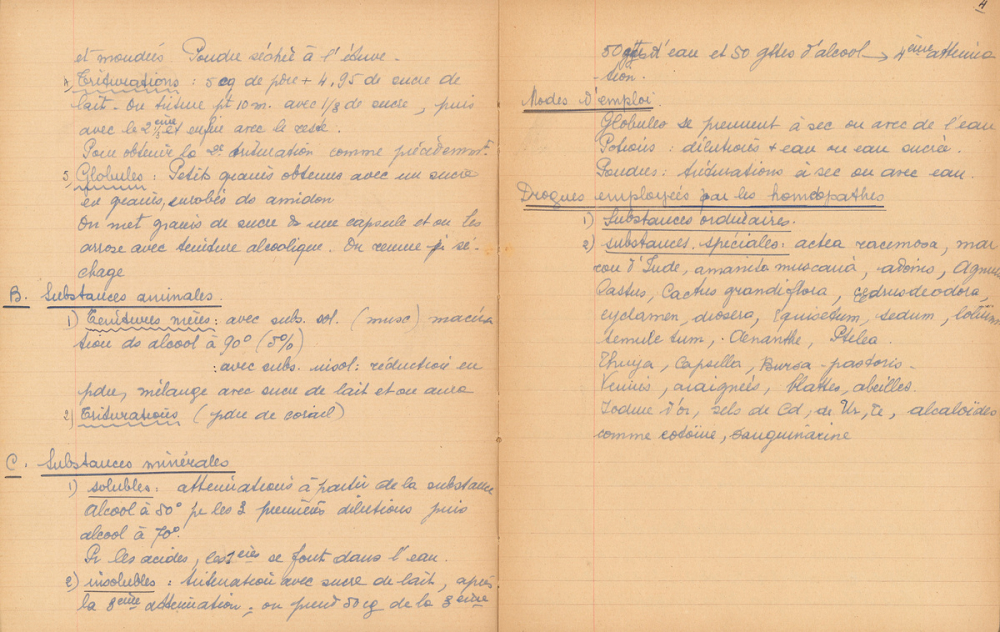 et mondées Poudre séchée à l'étuve.
4, Triturations : 5 cg de pdre + 4,95 de sucre de
lait - On triture pt 10 m. avec 1/3 de sucre, puis
avec le 2ème et enfin avec le reste.
Pour obtenir la 2e trituration comme précédemmt.
5, Globules : Petits grains obtenus avec un sucre
en grains, enrobés ds amidon
On met grains de sucre ds une capsule et on les
arrose avec teinture alcoolique. On remue pr sé-
chage
B. Substances animales.
1) Teintures mères : avec subs. sol. (musc) macéra
tion ds alcool à 90° (5%)
: avec subs. insol : réduction en
pdre, mélange avec sucre de lait et on aura
2) Triturations (pdre de corail)
C. Substances minérales
1) solubles : attenuations à partir de la substance
Alcool à 50° pr les 3 premières dilutions puis
alcool à 70°.
Pr les acides, les 1ères se font dans l'eau.
2) insolubles : trituration avec sucre de lait, après
la 3ème attenuation, on prend 50 cg de la 3ème
4
50 gttes d'eau et 50 gttes d'alcool → 4ème attenua
tion.
Modes d'emploi.
Globules se prennent à sec ou avec de l'eau
Potions : dilutions + eau ou eau sucrée.
Poudres : triturations à sec ou avec eau.
Drogues employées par les homéopathes
1) Substances ordinaires.
2) substances spéciales : actea racemosa, mar
ron d'Inde, amanita muscaria, adonis, Agnus
Castus, Cactus grandiflora, cedrus deodora,
cyclamen, drosera, Equisetum, sedum, lolium
temuletum, Oenanthe, Ptelea.
Thuya, Capsella, Bursa-pastoris.
Venins, araignées, blattes, abeilles.
Iodure d'or, sels de Cd, de Ur, Te, alcaloïdes
comme cotoïne, sanguinarine